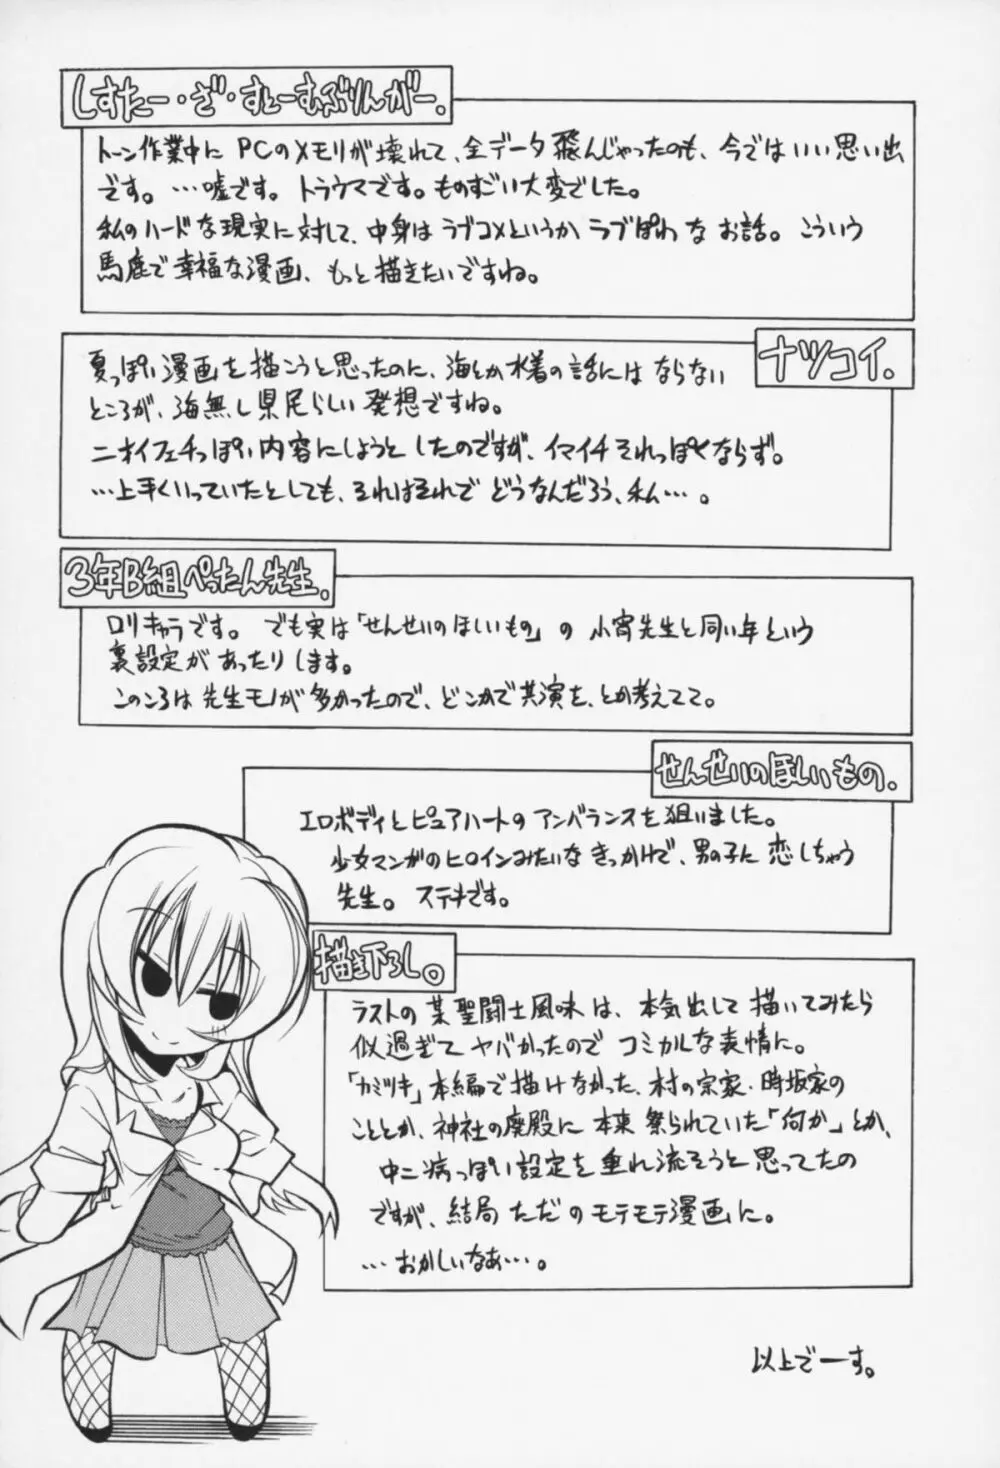 しすたー・ざ・すとーむぶりんがー。
トーン作業中に PCのメモリが壊れて、全データ飛んじゃったのも、今ではいい思い出
です。…嘘です。トラウマです。ものすごい大変でした。
私のハードな現実に対して、中身はラブコメというか ラブぽわな お話。こういう
馬鹿で幸福な漫画、もっと描きたいですね。
ナツコイ。
夏っぽい漫画を描こうと思ったのに、海とか水着の話にはならない
ところが、海無し県民らしい発想ですね。
ニオイフェチっぽい内容にしようとしたのですが、イマイチそれっぽくならず。
…上手くいっていたとしても、それはそれで どうなんだろう、私…。
3年B組ぺったん先生。
ロリキャラです。でも実は「せんせいのほしいもの」の 小宵先生と同い年という
裏設定が あったりします。
このころは 先生モノが多かったので、どこかで共演を、とか考えてて。
せんせいのほしいもの。
エロボディとピュアハートの アンバランスを狙いました。
少女マンガのヒロインみたいな きっかけで、男の子に 恋しちゃう
先生。ステキです。
描き下ろし。
ラストの 某聖闘士風味は、本気出して 描いてみたら
似過ぎて ヤバかったので コミカルな表情に。
「カミツキ」本編で描けなかった、村の宗家・時坂家の
こととか、神社の廃殿に 本来 祭られていた「何か」とか、
中二病っぽい設定を 垂れ流そうと思ってたの
ですが、結局 ただの モテモテ漫画に。
…おかしいなあ…。
以上でーす。